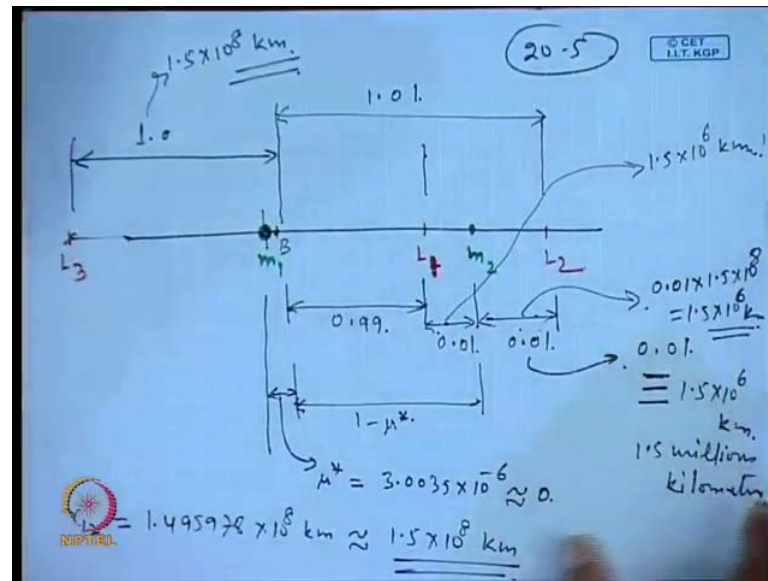 20-5
© CET
I.I.T. KGP
1.5×10⁸ km.
1.01.
1.0
1.5×10⁶ km.
L₃
m₁
B
L₁
m₂
L₂
0.99.
0.01.
0.01.
0.01×1.5×10⁸
= 1.5×10⁶ km
0.01.
≡ 1.5×10⁶
km.
1.5 millions
kilometers
1-μ*.
μ* = 3.0035×10⁻⁶ ≈ 0.
= 1.495978×10⁸ km ≈ 1.5×10⁸ km
NPTEL